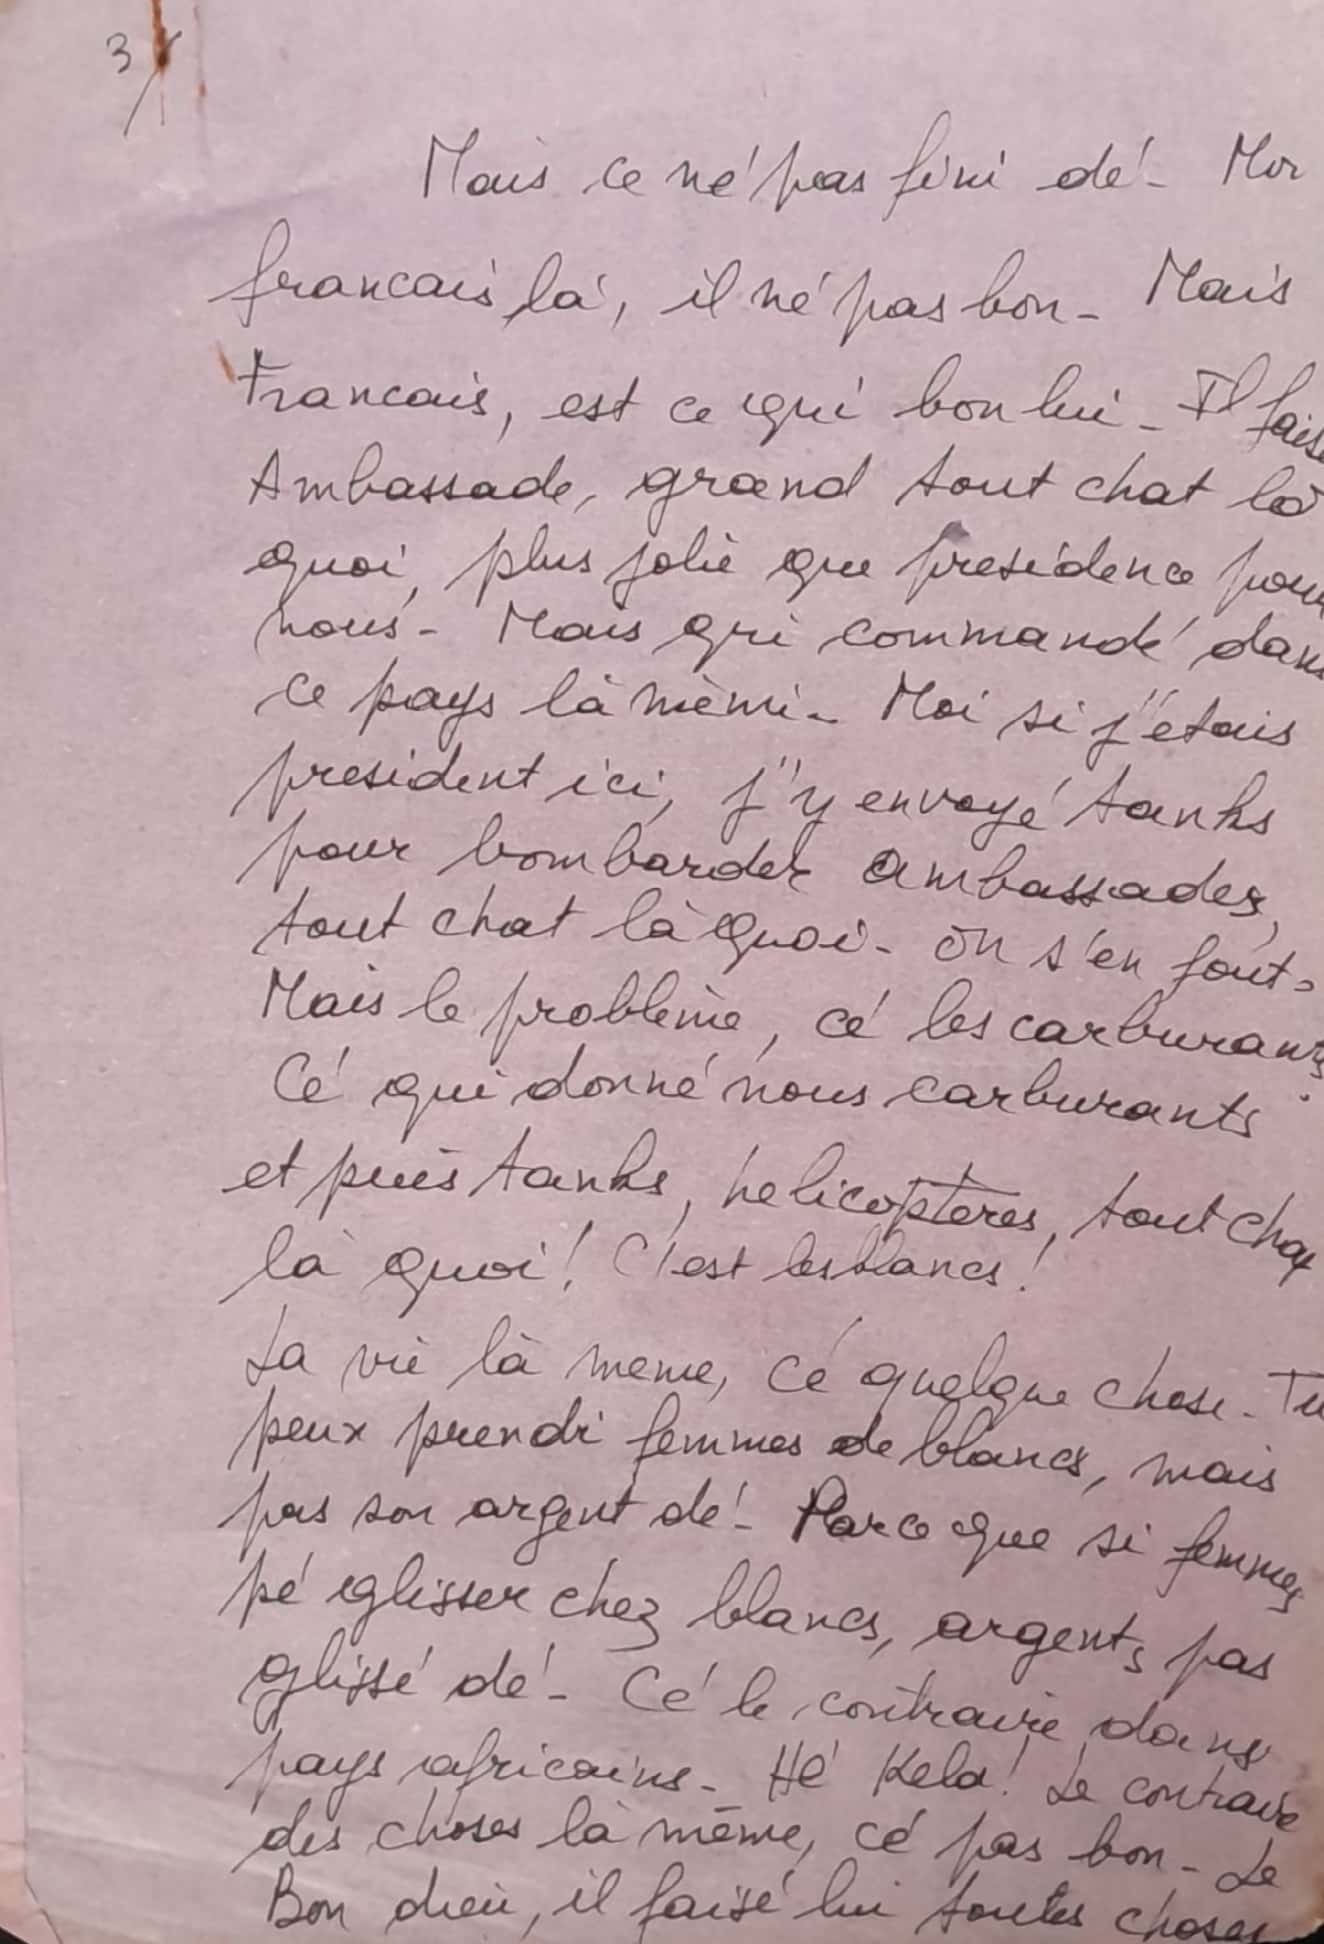 3/
Mais ce né pas fini dé - Moi
francais là, il né pas bon - Mais
Francais, est ce qui bon lui - Il faisé
Ambassade, grand tout chat là
quoi, plus jolie que presidence pour
nous - Mais qui commandé dans
ce pays là mèmi - Moi si j'étais
president ici, j'y envoyé tanks
pour bombarder ambassades,
tout chat là quoi - On s'en fout -
Mais le problème, cé les carburants.
Cé qui donné nous carburants
et puis tanks, helicoptères, tout chat
là quoi! C'est les blancs!
La vie là meme, cé quelque chose - Tu
peux prendi femmes de blancs, mais
pas son argent dé - Parce que si femmes
pé glisser chez blancs, argents pas
glissé dé - Cé le contraire dans
pays africains - Hé Kela! Le contraire
des choses là même, cé pas bon - Le
Bon dieu, il faisé lui toutes choses